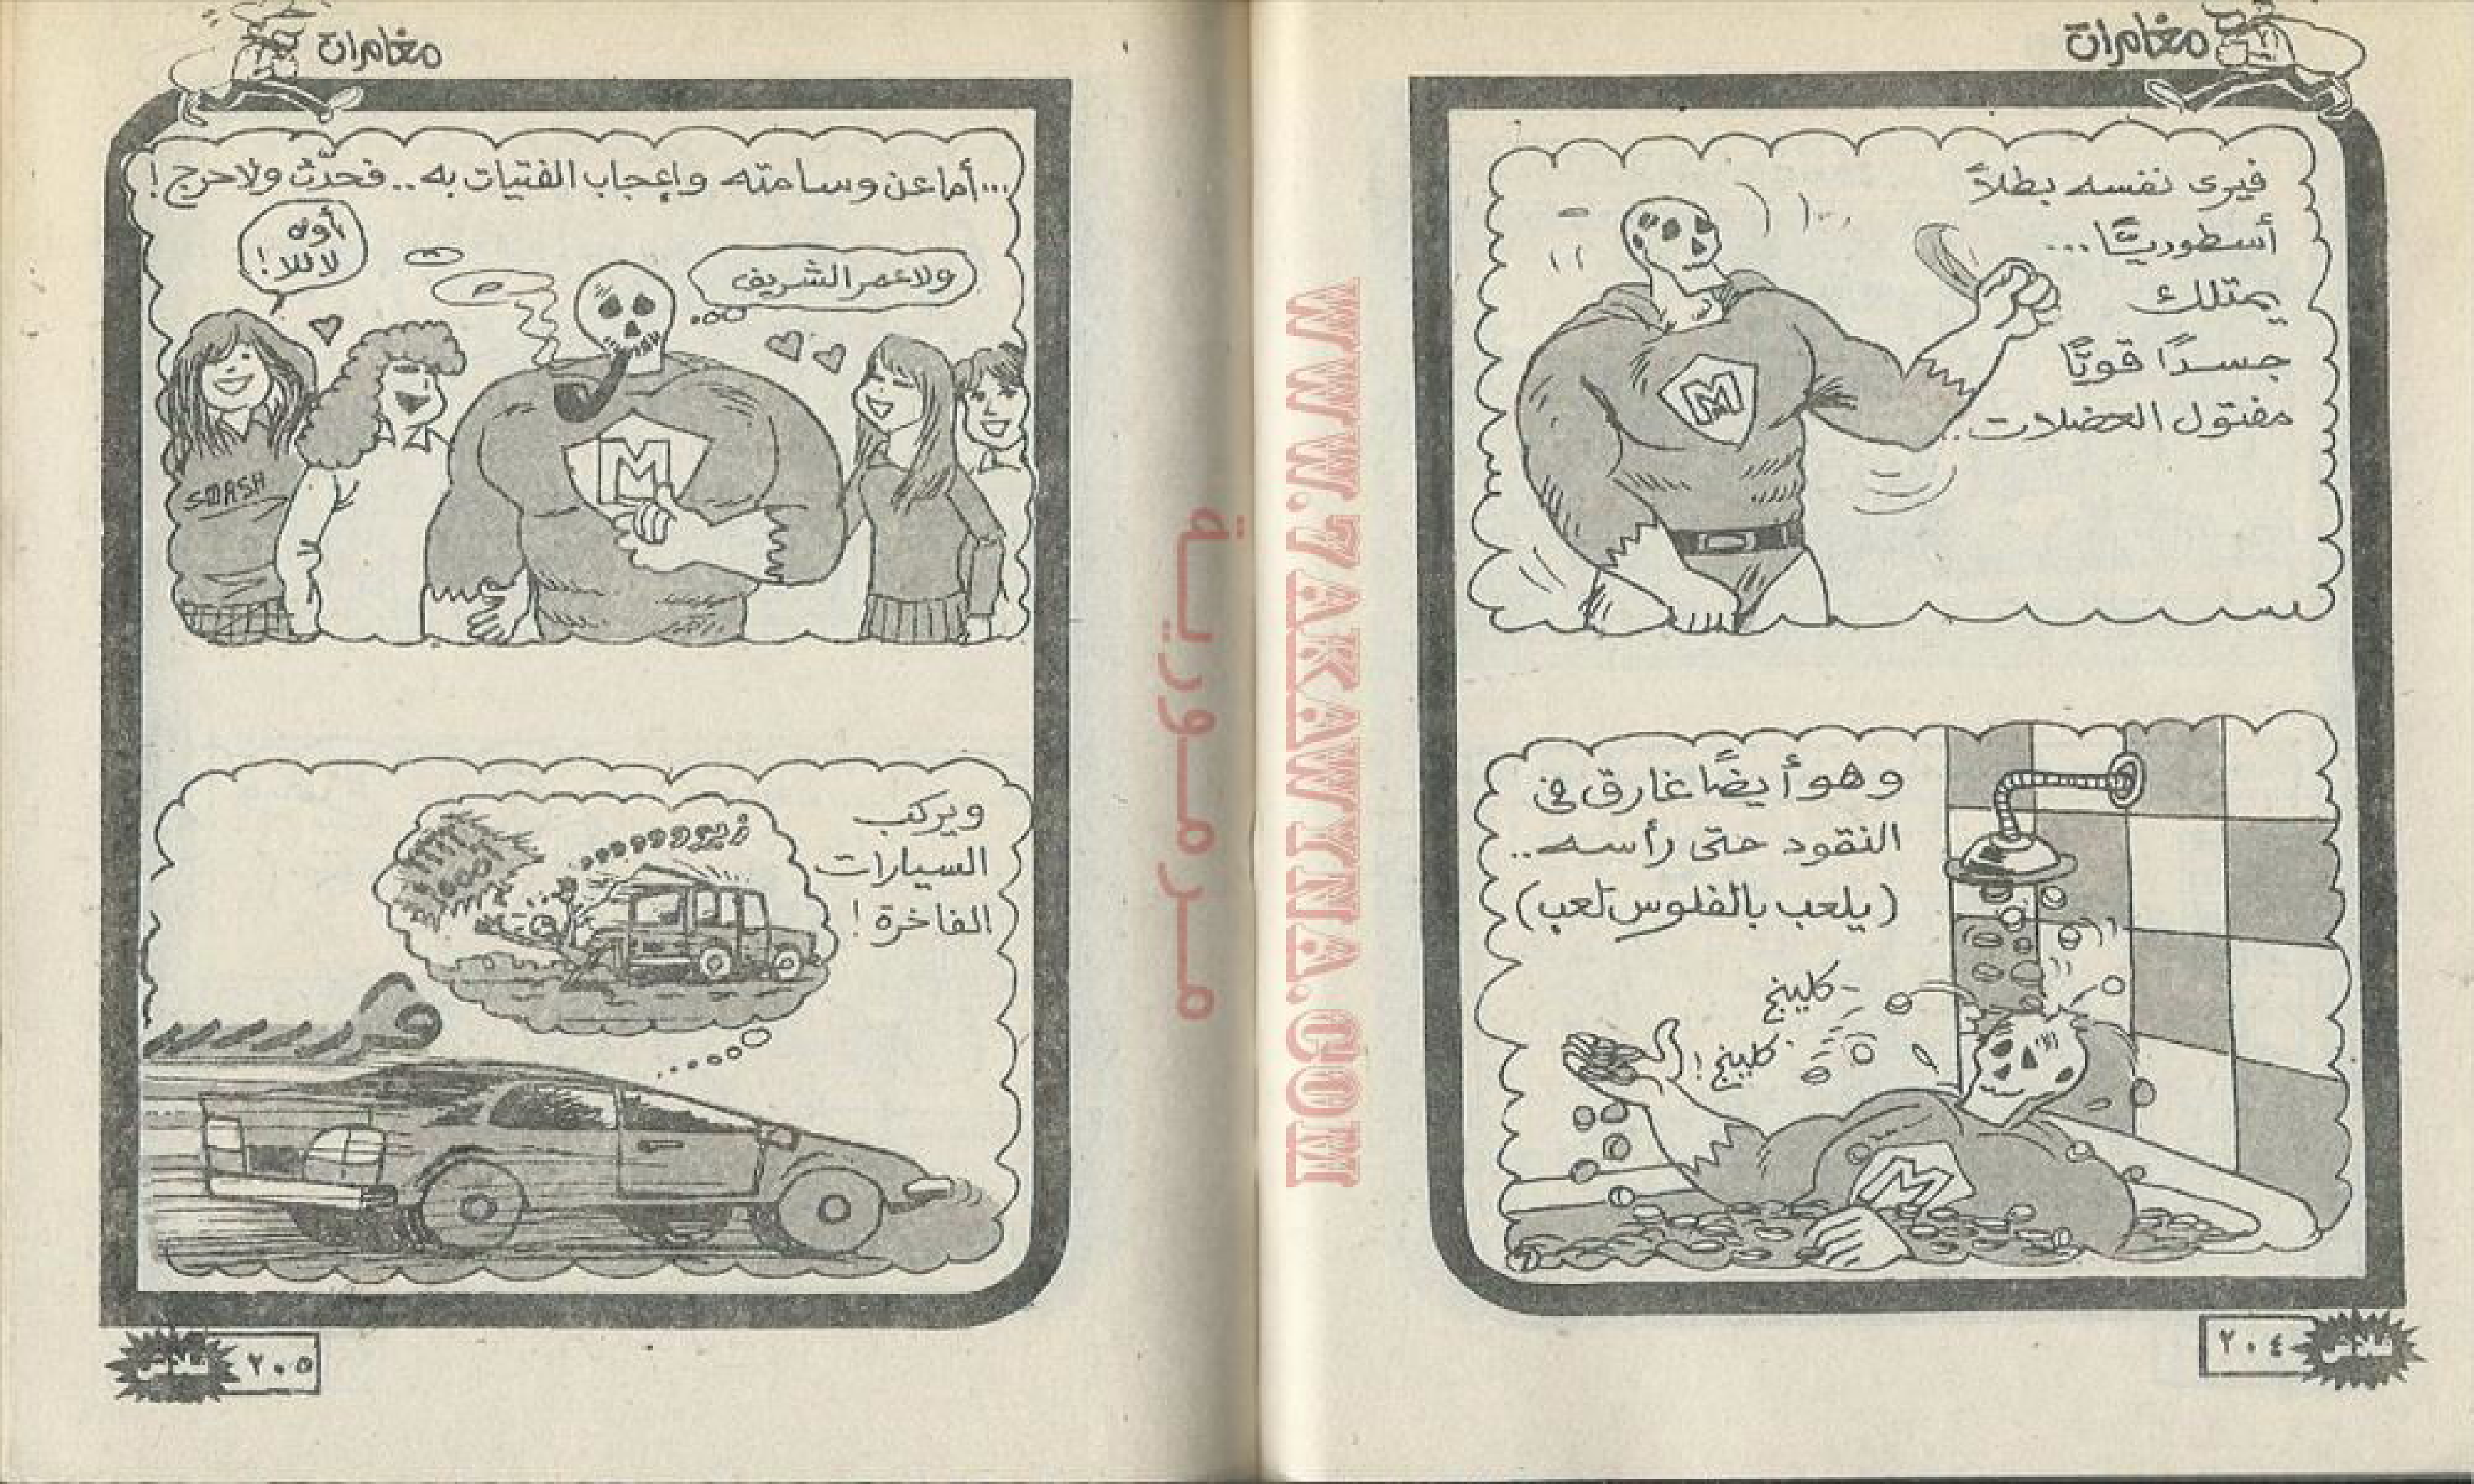 مغامرات
فيرى نفسه بطلاً
أسطوريًّا...
يمتلك
جسدًا قويًّا
مفتول العضلات..
M
وهو أيضًا غارق فى
النقود حتى رأسه..
(يلعب بالفلوس لعب)
كلينج
كلينج!
M
٢٠٤
فلاش
مغامرات
...أما عن وسامته وإعجاب الفتيات به.. فحدّث ولا حرج!
أوه
لا للا!
ولا عمر الشريف
M
SMASH
ويركب
السيارات
الفاخرة!
٢٠٥
فلاش
WWW.7AKAWYINA.COM
مرمورية